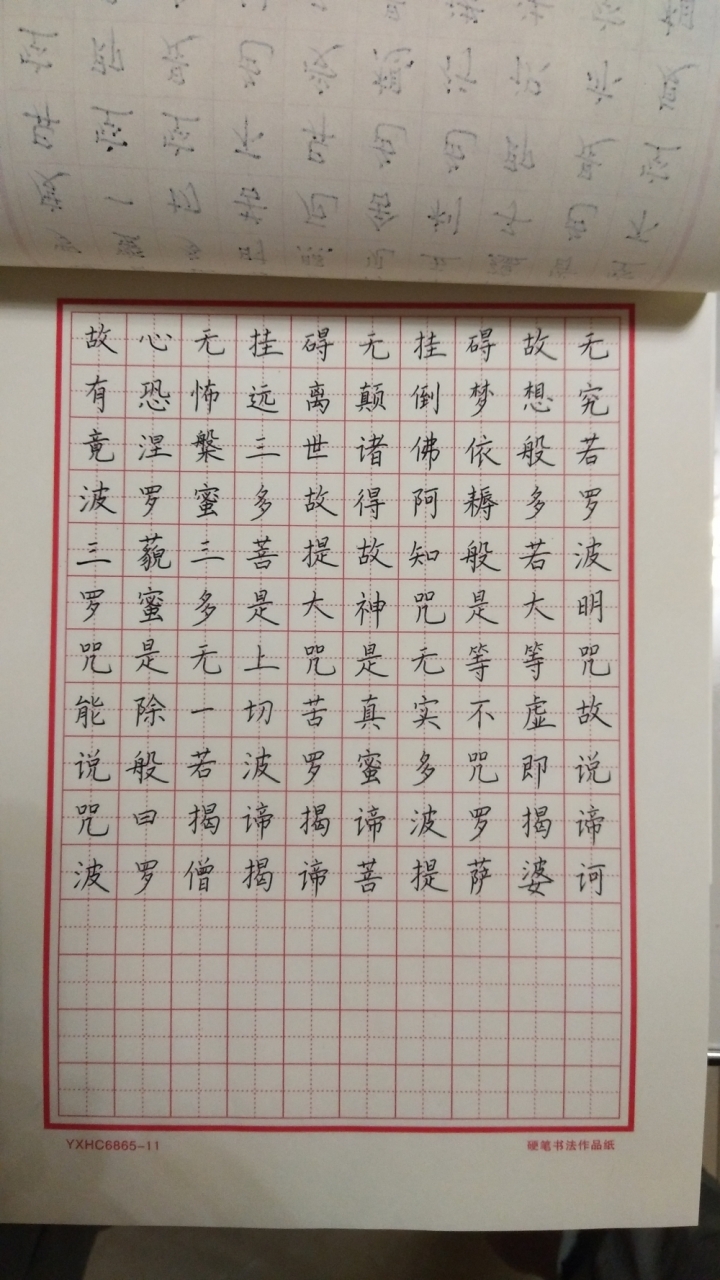 故心无挂碍无挂碍故无
有恐怖远离颠倒梦想究
竟涅槃三世诸佛依般若
波罗蜜多故得阿耨多罗
三藐三菩提故知般若波
罗蜜多是大神咒是大明
咒是无上咒是无等等咒
能除一切苦真实不虚故
说般若波罗蜜多咒即说
咒曰揭谛揭谛波罗揭谛
波罗僧揭谛菩提萨婆诃
YXHC6865-11
硬笔书法作品纸